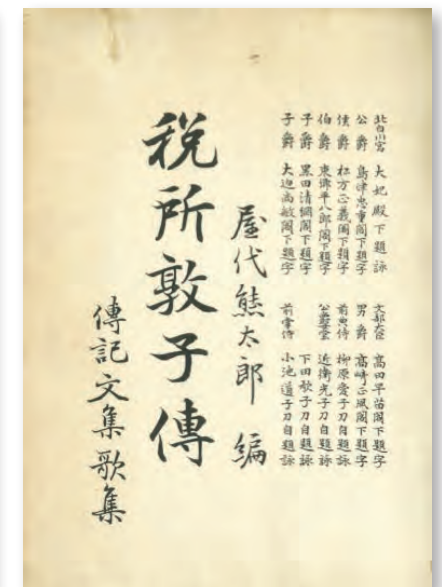 北白川宮 大妃殿下題詠
公爵 島津忠重閣下題字
侯爵 松方正義閣下題字
伯爵 東郷平八郎閣下題字
子爵 黒田清綱閣下題字
子爵 大迫尚敏閣下題字
文部大臣 高田早苗閣下題字
男爵 高崎正風閣下題字
前典侍 柳原愛子刀自題詠
近衛光子刀自題詠
下田歌子刀自題詠
前掌侍 小池道子刀自題詠
屋代熊太郎 編
税所敦子傳
傳記文集歌集